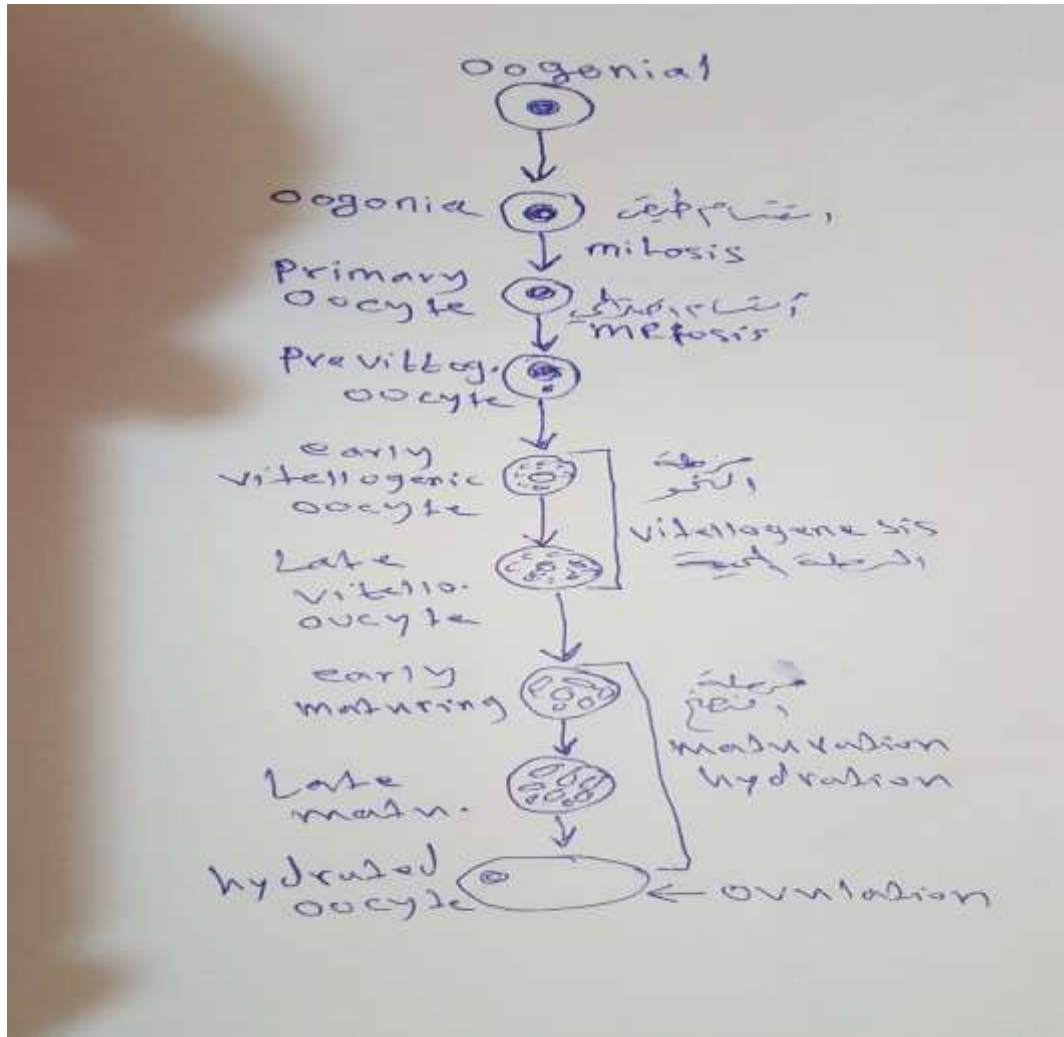 oogonial
oogonia
mitosis
Primary
oocyte
meiosis
Previttog.
oocyte
early
vitellogenic
oocyte
مرحلة
النمو
vitellogenesis
Late
vitello.
oocyte
early
maturing
مرحلة
النضج
maturation
hydration
Late
matu.
hydrated
oocyte
ovulation